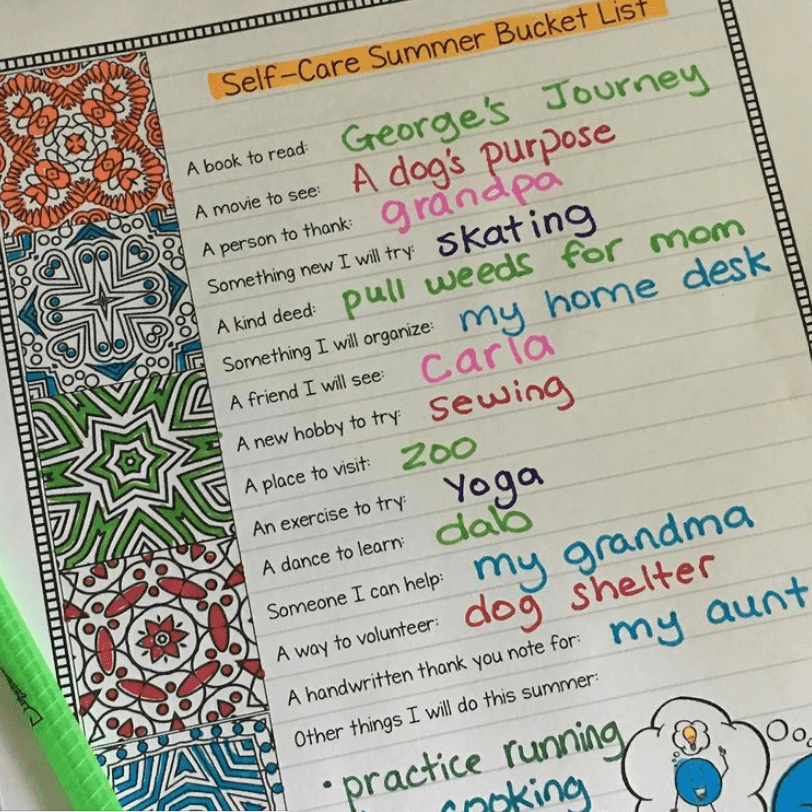 Self-Care Summer Bucket List
A book to read: George's Journey
A movie to see: A dog's purpose
A person to thank: grandpa
Something new I will try: skating
A kind deed: pull weeds for mom
Something I will organize: my home desk
A friend I will see: Carla
A new hobby to try: sewing
A place to visit: zoo
An exercise to try: Yoga
A dance to learn: dab
Someone I can help: my grandma
A way to volunteer: dog shelter
A handwritten thank you note for: my aunt
Other things I will do this summer:
• practice running
cooking